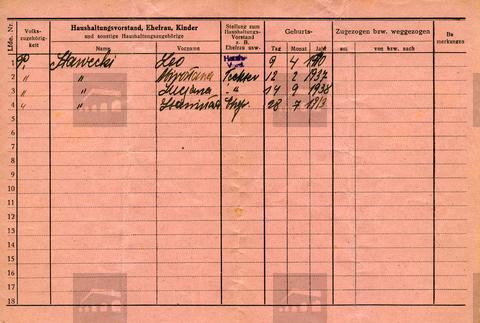 Lfde. Nr. Volks- zugehörig- keit Haushaltungsvorstand, Ehefrau, Kinder und sonstige Haushaltungsangehörige Name Vorname Stellung zum Haushaltungs- Vorstand z. B. Ehefrau usw. Geburts- Tag Monat Jahr Zugezogen bzw. weggezogen am von bzw. nach Be merkungen
1 P. Stawecki Leo 9 4 1910
2 " " Mirosłana Tochter 12 2 1937
3 " " Lucjana " 14 9 1938
4 " " Stanisław 28 7 1919
5
6
7
8
9
10
11
12
13
14
15
16
17
18